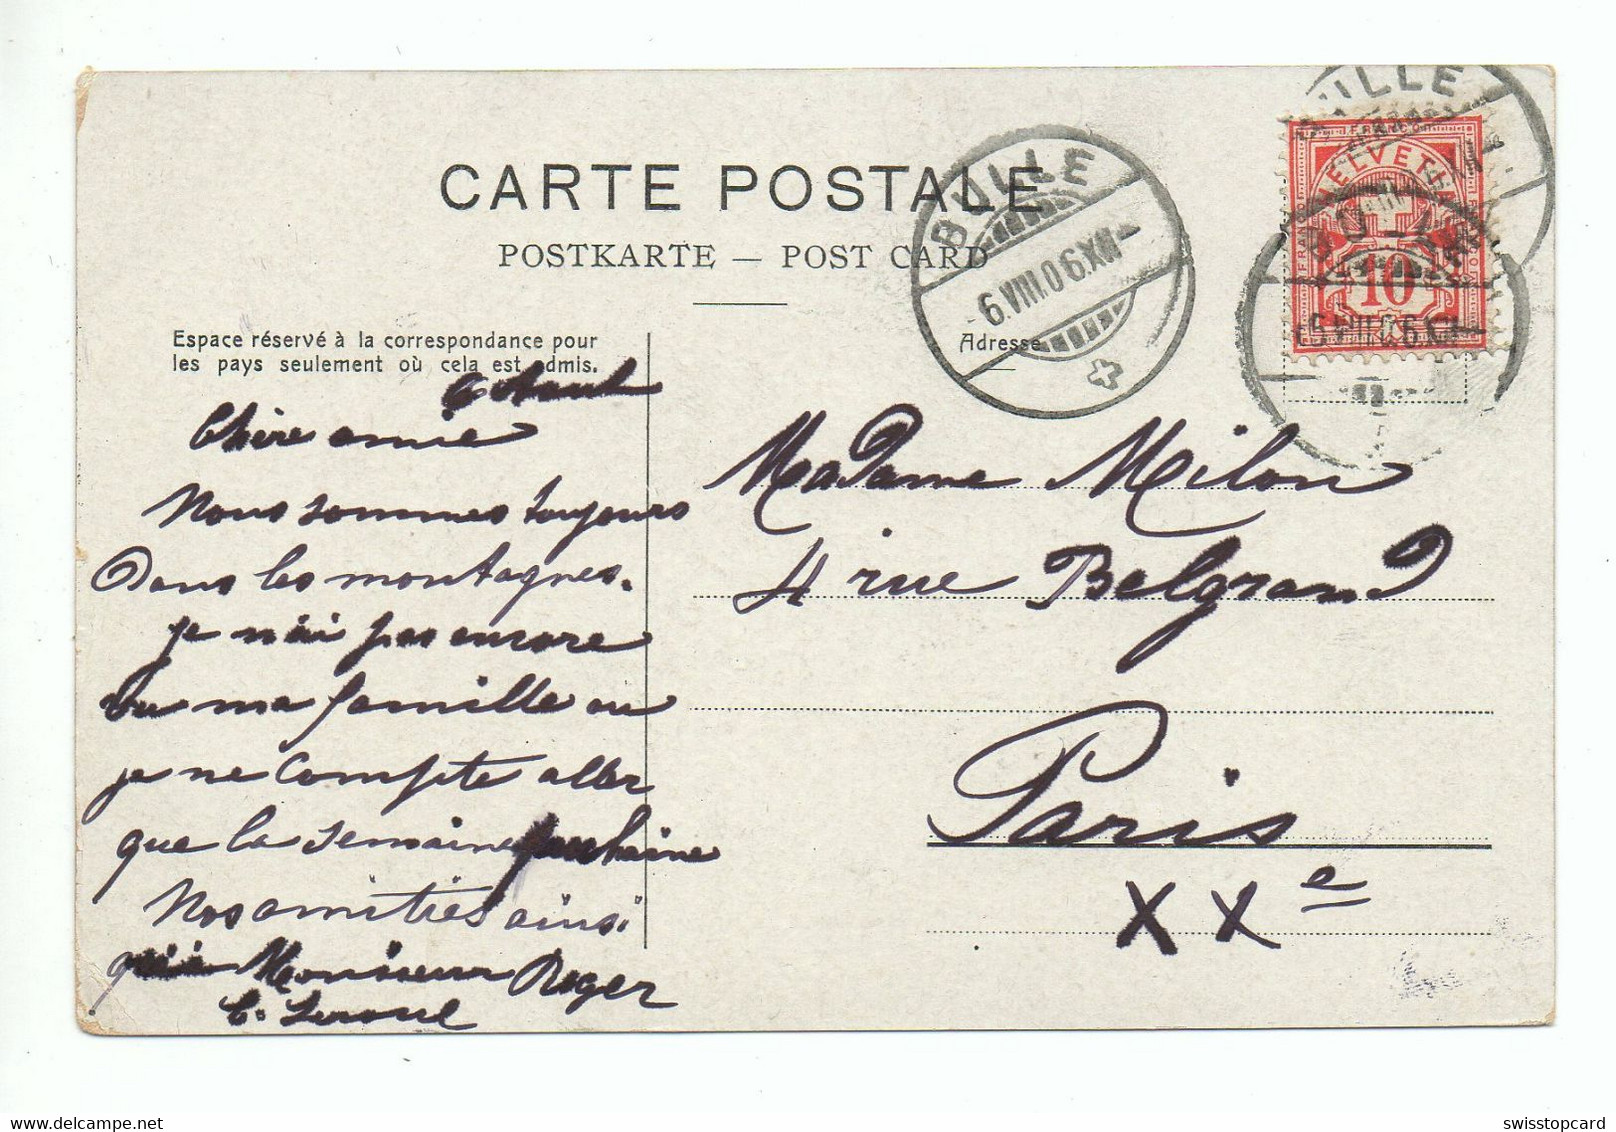 CARTE POSTALE
POSTKARTE — POST CARD
Espace réservé à la correspondance pour
les pays seulement où cela est admis.
Adresse
BULLE
6.VIII.06.XII-
BULLE
FRANCO
HELVETIA
10
6 Aout
Chère amie
Nous sommes toujours
Dans les montagnes.
je n'ai pas encore
vu ma famille ou
je ne compte aller
que la semaine prochaine
Nos amitiés ainsi
qu'à Monsieur Roger
Madame Milon
4 rue Belgrand
Paris
XXe
swisstopcard